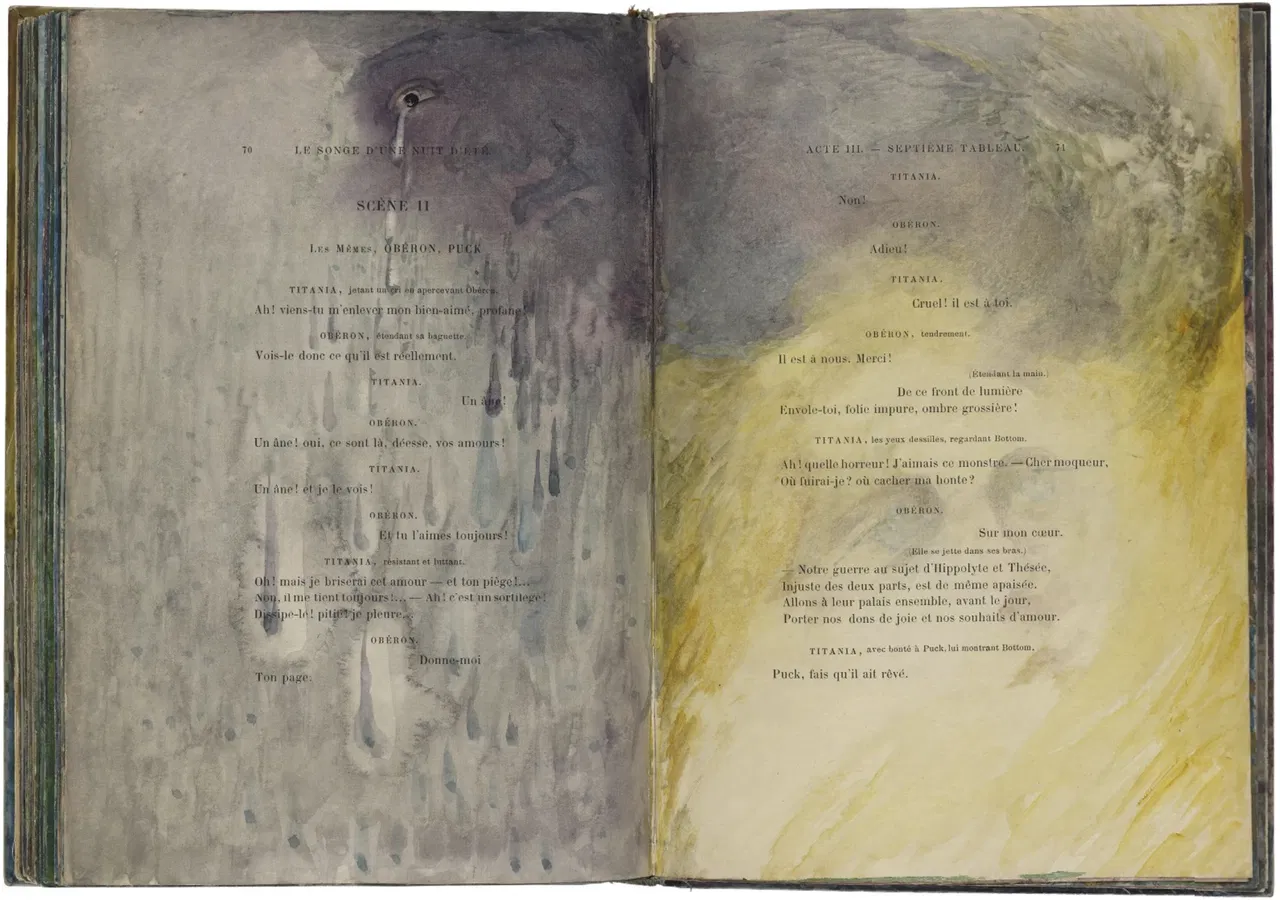 70 LE SONGE D'UNE NUIT D'ÉTÉ.
SCÈNE II
LES MÊMES, OBÉRON, PUCK
TITANIA, jetant un cri en apercevant Obéron.
Ah! viens-tu m'enlever mon bien-aimé, profane!
OBÉRON, étendant sa baguette.
Vois-le donc ce qu'il est réellement.
TITANIA.
Un âne!
OBÉRON.
Un âne! oui, ce sont là, déesse, vos amours!
TITANIA.
Un âne! et je le vois!
OBÉRON.
Et tu l'aimes toujours!
TITANIA, résistant et luttant.
Oh! mais je briserai cet amour — et ton piège!...
Non, il me tient toujours!... — Ah! c'est un sortilège!
Dissipe-lé! pitié! je pleure...
OBÉRON.
Donne-moi
Ton page.
ACTE III. — SEPTIÈME TABLEAU. 71
TITANIA.
Non!
OBÉRON.
Adieu!
TITANIA.
Cruel! il est à toi.
OBÉRON, tendrement.
Il est à nous. Merci!
(Étendant la main.)
De ce front de lumière
Envole-toi, folie impure, ombre grossière!
TITANIA, les yeux dessillés, regardant Bottom.
Ah! quelle horreur! J'aimais ce monstre. — Cher moqueur,
Où fuirai-je? où cacher ma honte?
OBÉRON.
Sur mon cœur.
(Elle se jette dans ses bras.)
— Notre guerre au sujet d'Hippolyte et Thésée,
Injuste des deux parts, est de même apaisée.
Allons à leur palais ensemble, avant le jour,
Porter nos dons de joie et nos souhaits d'amour.
TITANIA, avec bonté à Puck, lui montrant Bottom.
Puck, fais qu'il ait rêvé.